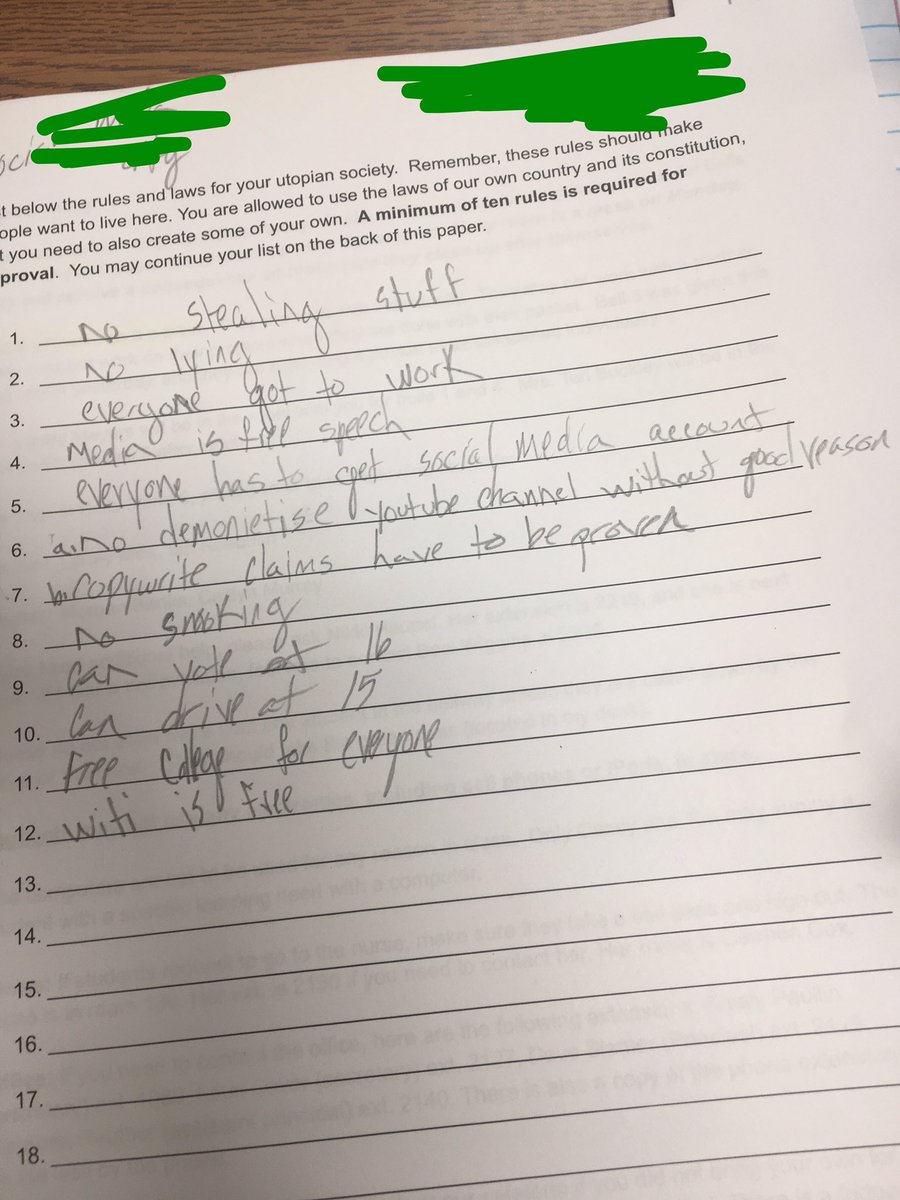 t below the rules and laws for your utopian society. Remember, these rules should make
ople want to live here. You are allowed to use the laws of our own country and its constitution,
t you need to also create some of your own. A minimum of ten rules is required for
proval. You may continue your list on the back of this paper.
1. No stealing stuff
2. No lying
3. everyone got to work
4. Media is free speech
5. everyone has to get social media account
6. a. no demonietise youtube channel without good reason
7. b. Copywrite claims have to be proven
8. no smoking
9. Can vote at 16
10. Can drive at 15
11. free Collage for everyone
12. wifi is free
13.
14.
15.
16.
17.
18.